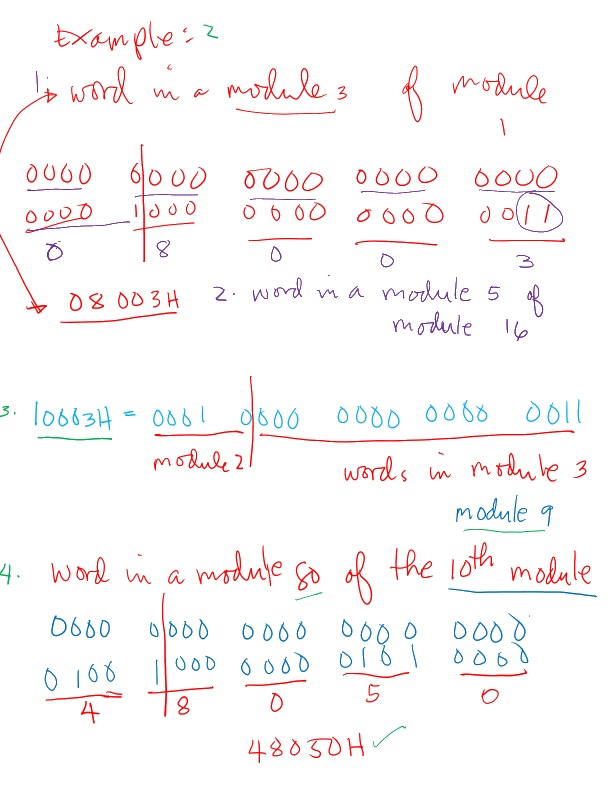 Example: 2
1. word in a module 3 of module 1
0000 0000 0000 0000 0000
0000 1000 0000 0000 0011
0 8 0 0 3
08003H
2. word in a module 5 of
module 16
3. 10003H = 0001 0000 0000 0000 0011
module 2 words in module 3
module 9
4. word in a module 80 of the 10th module
0000 0000 0000 0000 0000
0100 1000 0000 0101 0000
4 8 0 5 0
48050H ✓